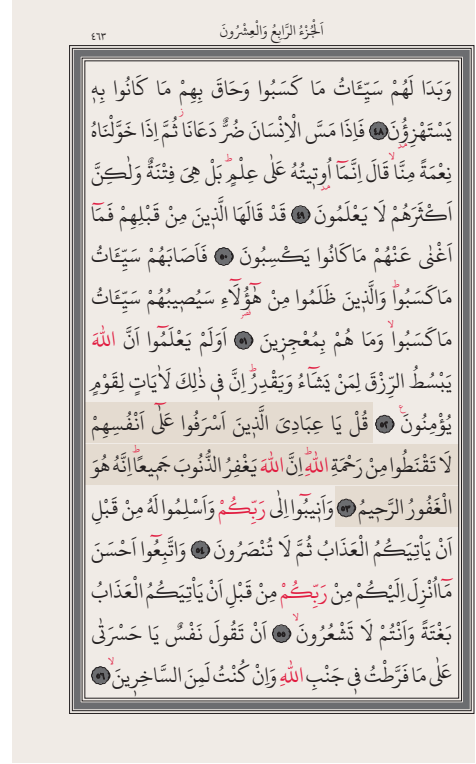 اَلْجُزْءُ الرَّابِعُ وَالْعِشْرُونَ
٤٦٣
وَبَدَا لَهُمْ سَيِّـَٔاتُ مَا كَسَبُوا وَحَاقَ بِهِمْ مَا كَانُوا بِه۪
يَسْتَهْزِؤُ۫نَ ﴿٤٨﴾ فَاِذَا مَسَّ الْاِنْسَانَ ضُرٌّ دَعَانَاۘ ثُمَّ اِذَا خَوَّلْنَاهُ
نِعْمَةً مِنَّاۙ قَالَ اِنَّمَٓا اُو۫ت۪يتُهُ عَلٰى عِلْمٍۜ بَلْ هِيَ فِتْنَةٌ وَلٰكِنَّ
اَكْثَرَهُمْ لَا يَعْلَمُونَ ﴿٤٩﴾ قَدْ قَالَهَا الَّذ۪ينَ مِنْ قَبْلِهِمْ فَمَٓا
اَغْنٰى عَنْهُمْ مَا كَانُوا يَكْسِبُونَ ﴿٥٠﴾ فَاَصَابَهُمْ سَيِّـَٔاتُ
مَا كَسَبُواۜ وَالَّذ۪ينَ ظَلَمُوا مِنْ هٰٓؤُ۬لَٓاءِ سَيُص۪يبُهُمْ سَيِّـَٔاتُ
مَا كَسَبُواۙ وَمَا هُمْ بِمُعْجِز۪ينَ ﴿٥١﴾ اَوَلَمْ يَعْلَمُٓوا اَنَّ اللّٰهَ
يَبْسُطُ الرِّزْقَ لِمَنْ يَشَٓاءُ وَيَقْدِرُۜ اِنَّ ف۪ي ذٰلِكَ لَاٰيَاتٍ لِقَوْمٍ
يُؤْمِنُونَ۟ ﴿٥٢﴾ قُلْ يَا عِبَادِيَ الَّذ۪ينَ اَسْرَفُوا عَلٰٓى اَنْفُسِهِمْ
لَا تَقْنَطُوا مِنْ رَحْمَةِ اللّٰهِۜ اِنَّ اللّٰهَ يَغْفِرُ الذُّنُوبَ جَم۪يعاًۜ اِنَّهُ هُوَ
الْغَفُورُ الرَّح۪يمُ ﴿٥٣﴾ وَاَن۪يبُٓوا اِلٰى رَبِّكُمْ وَاَسْلِمُوا لَهُ مِنْ قَبْلِ
اَنْ يَأْتِيَكُمُ الْعَذَابُ ثُمَّ لَا تُنْصَرُونَ ﴿٥٤﴾ وَاتَّبِعُٓوا اَحْسَنَ
مَٓا اُنْزِلَ اِلَيْكُمْ مِنْ رَبِّكُمْ مِنْ قَبْلِ اَنْ يَأْتِيَكُمُ الْعَذَابُ
بَغْتَةً وَاَنْتُمْ لَا تَشْعُرُونَۙ ﴿٥٥﴾ اَنْ تَقُولَ نَفْسٌ يَا حَسْرَتٰى
عَلٰى مَا فَرَّطْتُ ف۪ي جَنْبِ اللّٰهِ وَاِنْ كُنْتُ لَمِنَ السَّاخِر۪ينَۙ ﴿٥٦﴾